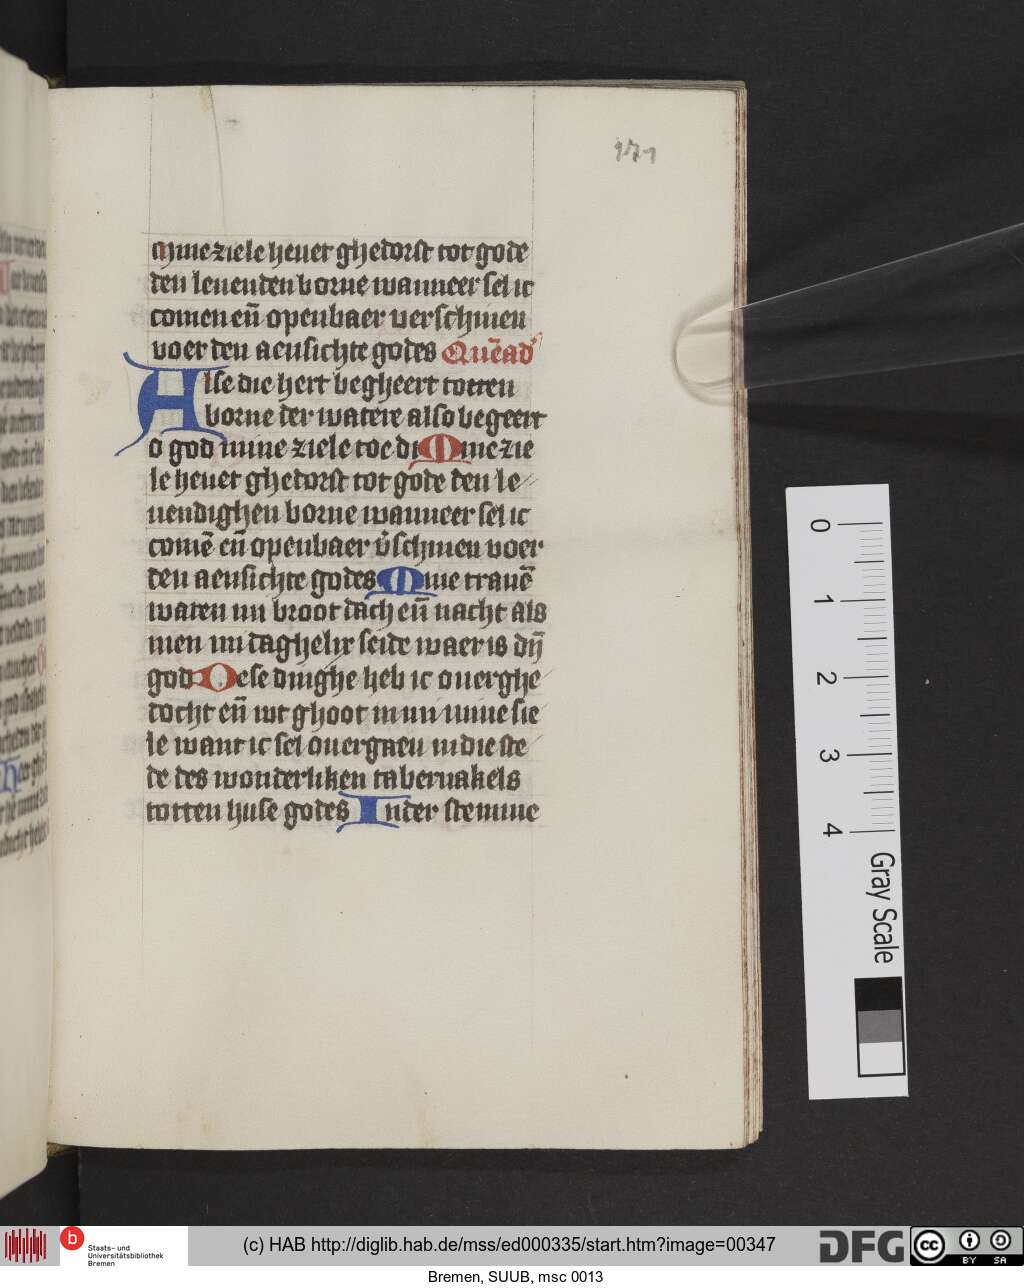 171
Mine ziele heuet ghedorst tot gode
den leuenden borne wanneer sel ic
comen en̄ openbaer verschinen
voer den aensichte godes Quēad'
Alse die hert begheert totten
borne der watere also begeert
o god mine ziele toe di Mine zie
le heuet ghedorst tot gode den le
uendighen borne wanneer sel ic
comē en̄ openbaer v̄schinen voer
den aensichte godes Mine tranē
waren mi broot dach en̄ nacht als
men mi daghelix seide waer is dyn̄
god Dese dinghe heb ic ouerghe
docht en̄ wt ghoot in mi mine sie
le want ic sel ouergaen in die ste
de des wonderliken tabernakels
totten huse godes In der stemme
0
1
2
3
4
Gray Scale
b
Staats- und
Universitätsbibliothek
Bremen
(c) HAB http://diglib.hab.de/mss/ed000335/start.htm?image=00347
DFG
cc BY SA
Bremen, SUUB, msc 0013